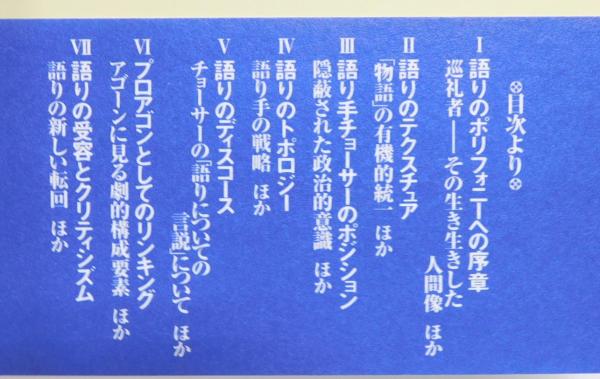 ※目次より※
Ⅰ 語りのポリフォニーへの序章
巡礼者――その生き生きした
人間像 ほか
Ⅱ 語りのテクスチュア
「物語」の有機的統一 ほか
Ⅲ 語り手チョーサーのポジション
隠蔽された政治的意識 ほか
Ⅳ 語りのトポロジー
語り手の戦略 ほか
Ⅴ 語りのディスコース
チョーサーの「語りについての
言説」について ほか
Ⅵ プロアゴンとしてのリンキング
アゴーンに見る劇的構成要素 ほか
Ⅶ 語りの受容とクリティシズム
語りの新しい転回 ほか